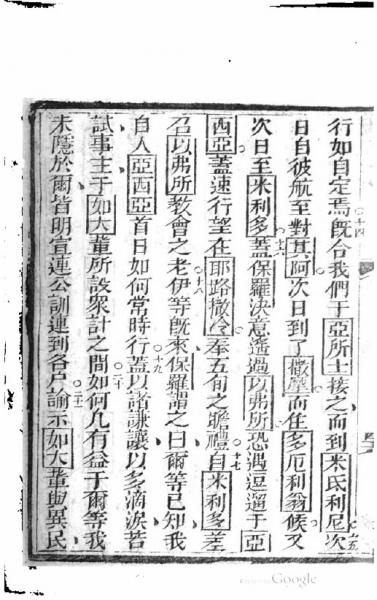 行如自定焉○十四既合我們于亞所士接之而到米氏利尼○十五次
日自彼航至對其阿次日到了撒摩而住多厄利翁候又
次日至米利多○十六蓋保羅決意遙過以弗所恐遇逗遛于亞
西亞蓋速行望在耶路撒冷奉五旬之瞻禮○十七自米利多差
召以弗所教會之老伊等○十八既來保羅謂之曰爾等已知我
自入亞西亞首日如何常時行○十九蓋以諸謙讓以多滴淚苦
試事主于如大輩所設眾計之間○二十如何凡有益于爾等我
未隱於爾皆明宣連公訓連到各戶○二一諭示如大輩與異民
Google